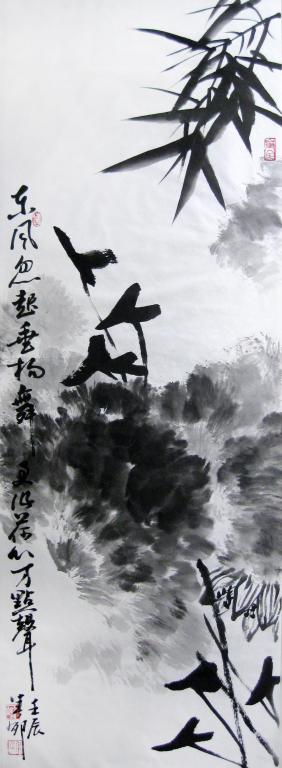 东风忽起垂杨舞更作荷心万點聲
壬辰